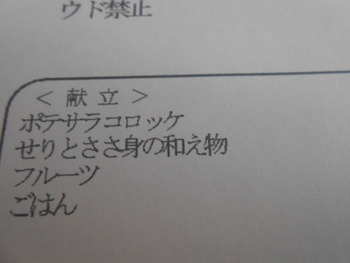 ウド禁止
＜ 献 立 ＞
ポテサラコロッケ
せりとささ身の和え物
フルーツ
ごはん